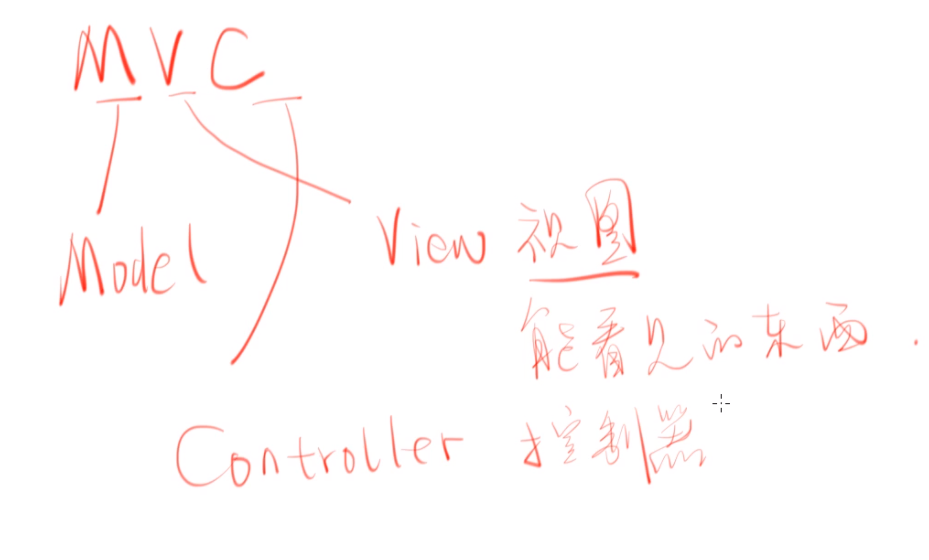 MVC
Model
View 视图
能看见的东西.
Controller 控制器